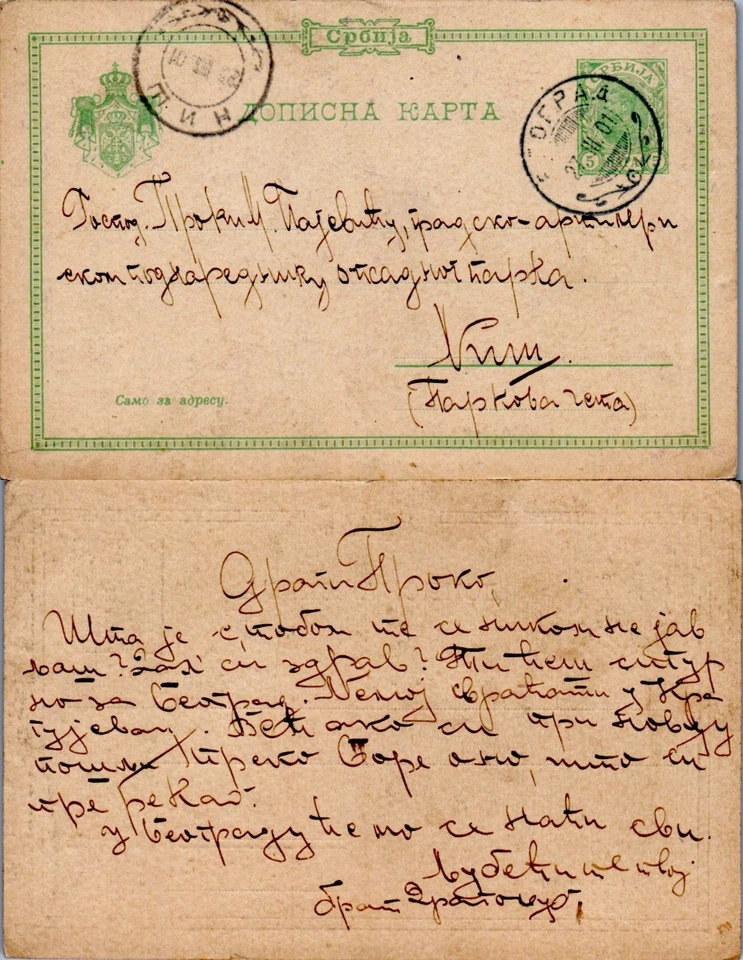 Србија
СРБИЈА
ДОПИСНА КАРТА
5
НИШ
ОГРАД
Господ. Проки М. Пајевићу, градско-артилери
ском поднареднику опсадног парка.
Ниш.
(Паркова чета)
Само за адресу.
Драги Проко,
Шта је с тобом те се ником не јав
љаш? Јел си здрав? Ти ћеш сигур
но за Београд. Немој свраћати у Кра
гујевац. Већ ако си при новцу
пошљи преко Ђоре оно, што си
пре рекао.
у Београду ћемо се наћи сви.
Љубећи те твој
брат